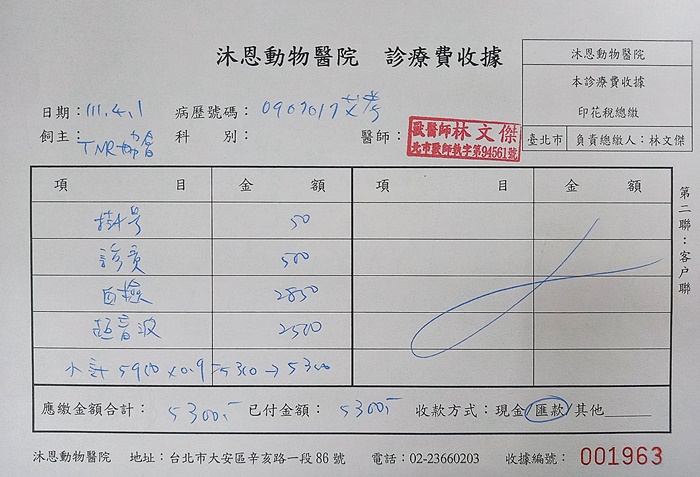 沐恩動物醫院 診療費收據
沐恩動物醫院
本診療費收據
印花稅總繳
臺北市 負責總繳人：林文傑
日期：111.4.1 病歷號碼：0907017艾考
飼主：TNR協會 科 別： 醫師：
獸醫師林文傑
北市獸師執字第94561號
項 目 金 額 項 目 金 額
掛号 50
診費 500
血檢 2850
超音波 2500
小計 5900 x 0.9 = 5300 → 5300
應繳金額合計：5300.- 已付金額：5300.- 收款方式：現金/匯款/其他
第二聯：客戶聯
沐恩動物醫院 地址：台北市大安區辛亥路一段86號 電話：02-23660203 收據編號：001963